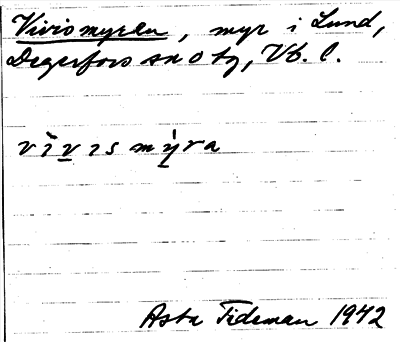 Vivismyran, myr i Lund,
Degerfors sn o tg, Vb. l.
vìvɪs mýra
Asta Tideman 1942